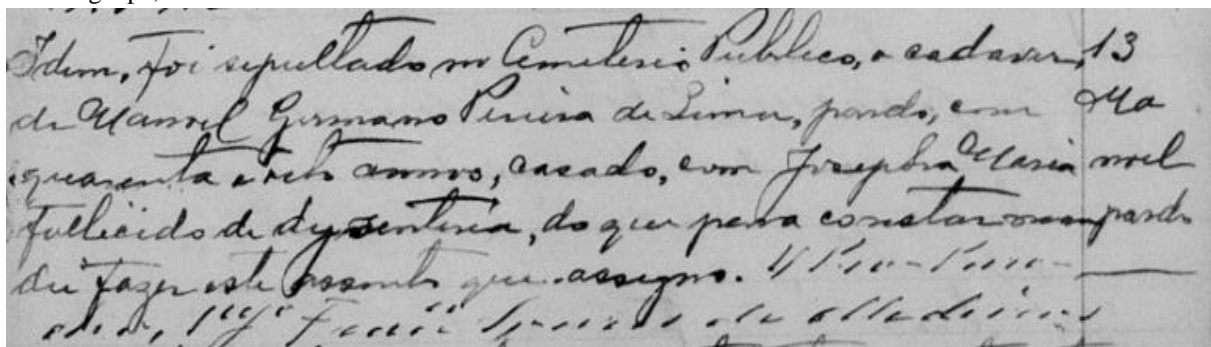 Idem, foi sepultado no Cemeterio Publico, o cadaver, 13
de Manoel Germano Pereira de Lima, pardo, com Ma
quarenta e oito annos, casado, com Josepha Maria noel
fallecido de dysenteria, do que para constar man pardo
dei fazer este assento que assigno. O Pro-Paro-
cho, Pe Je